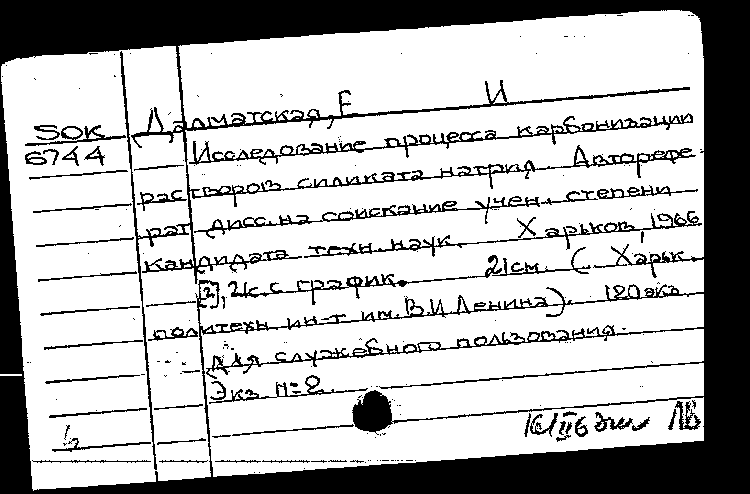 SOK Далматская, Е И
6744 Исследование процесса карбонизации
растворов силиката натрия. Авторефе-
рат дисс. на соискание учен. степени
кандидата техн. наук. Харьков, 1966
[2], 2к. с график. 21см. (Харьк.
политехн ин-т им. В.И Ленина). 120экз.
Для служебного пользования.
Экз №2.